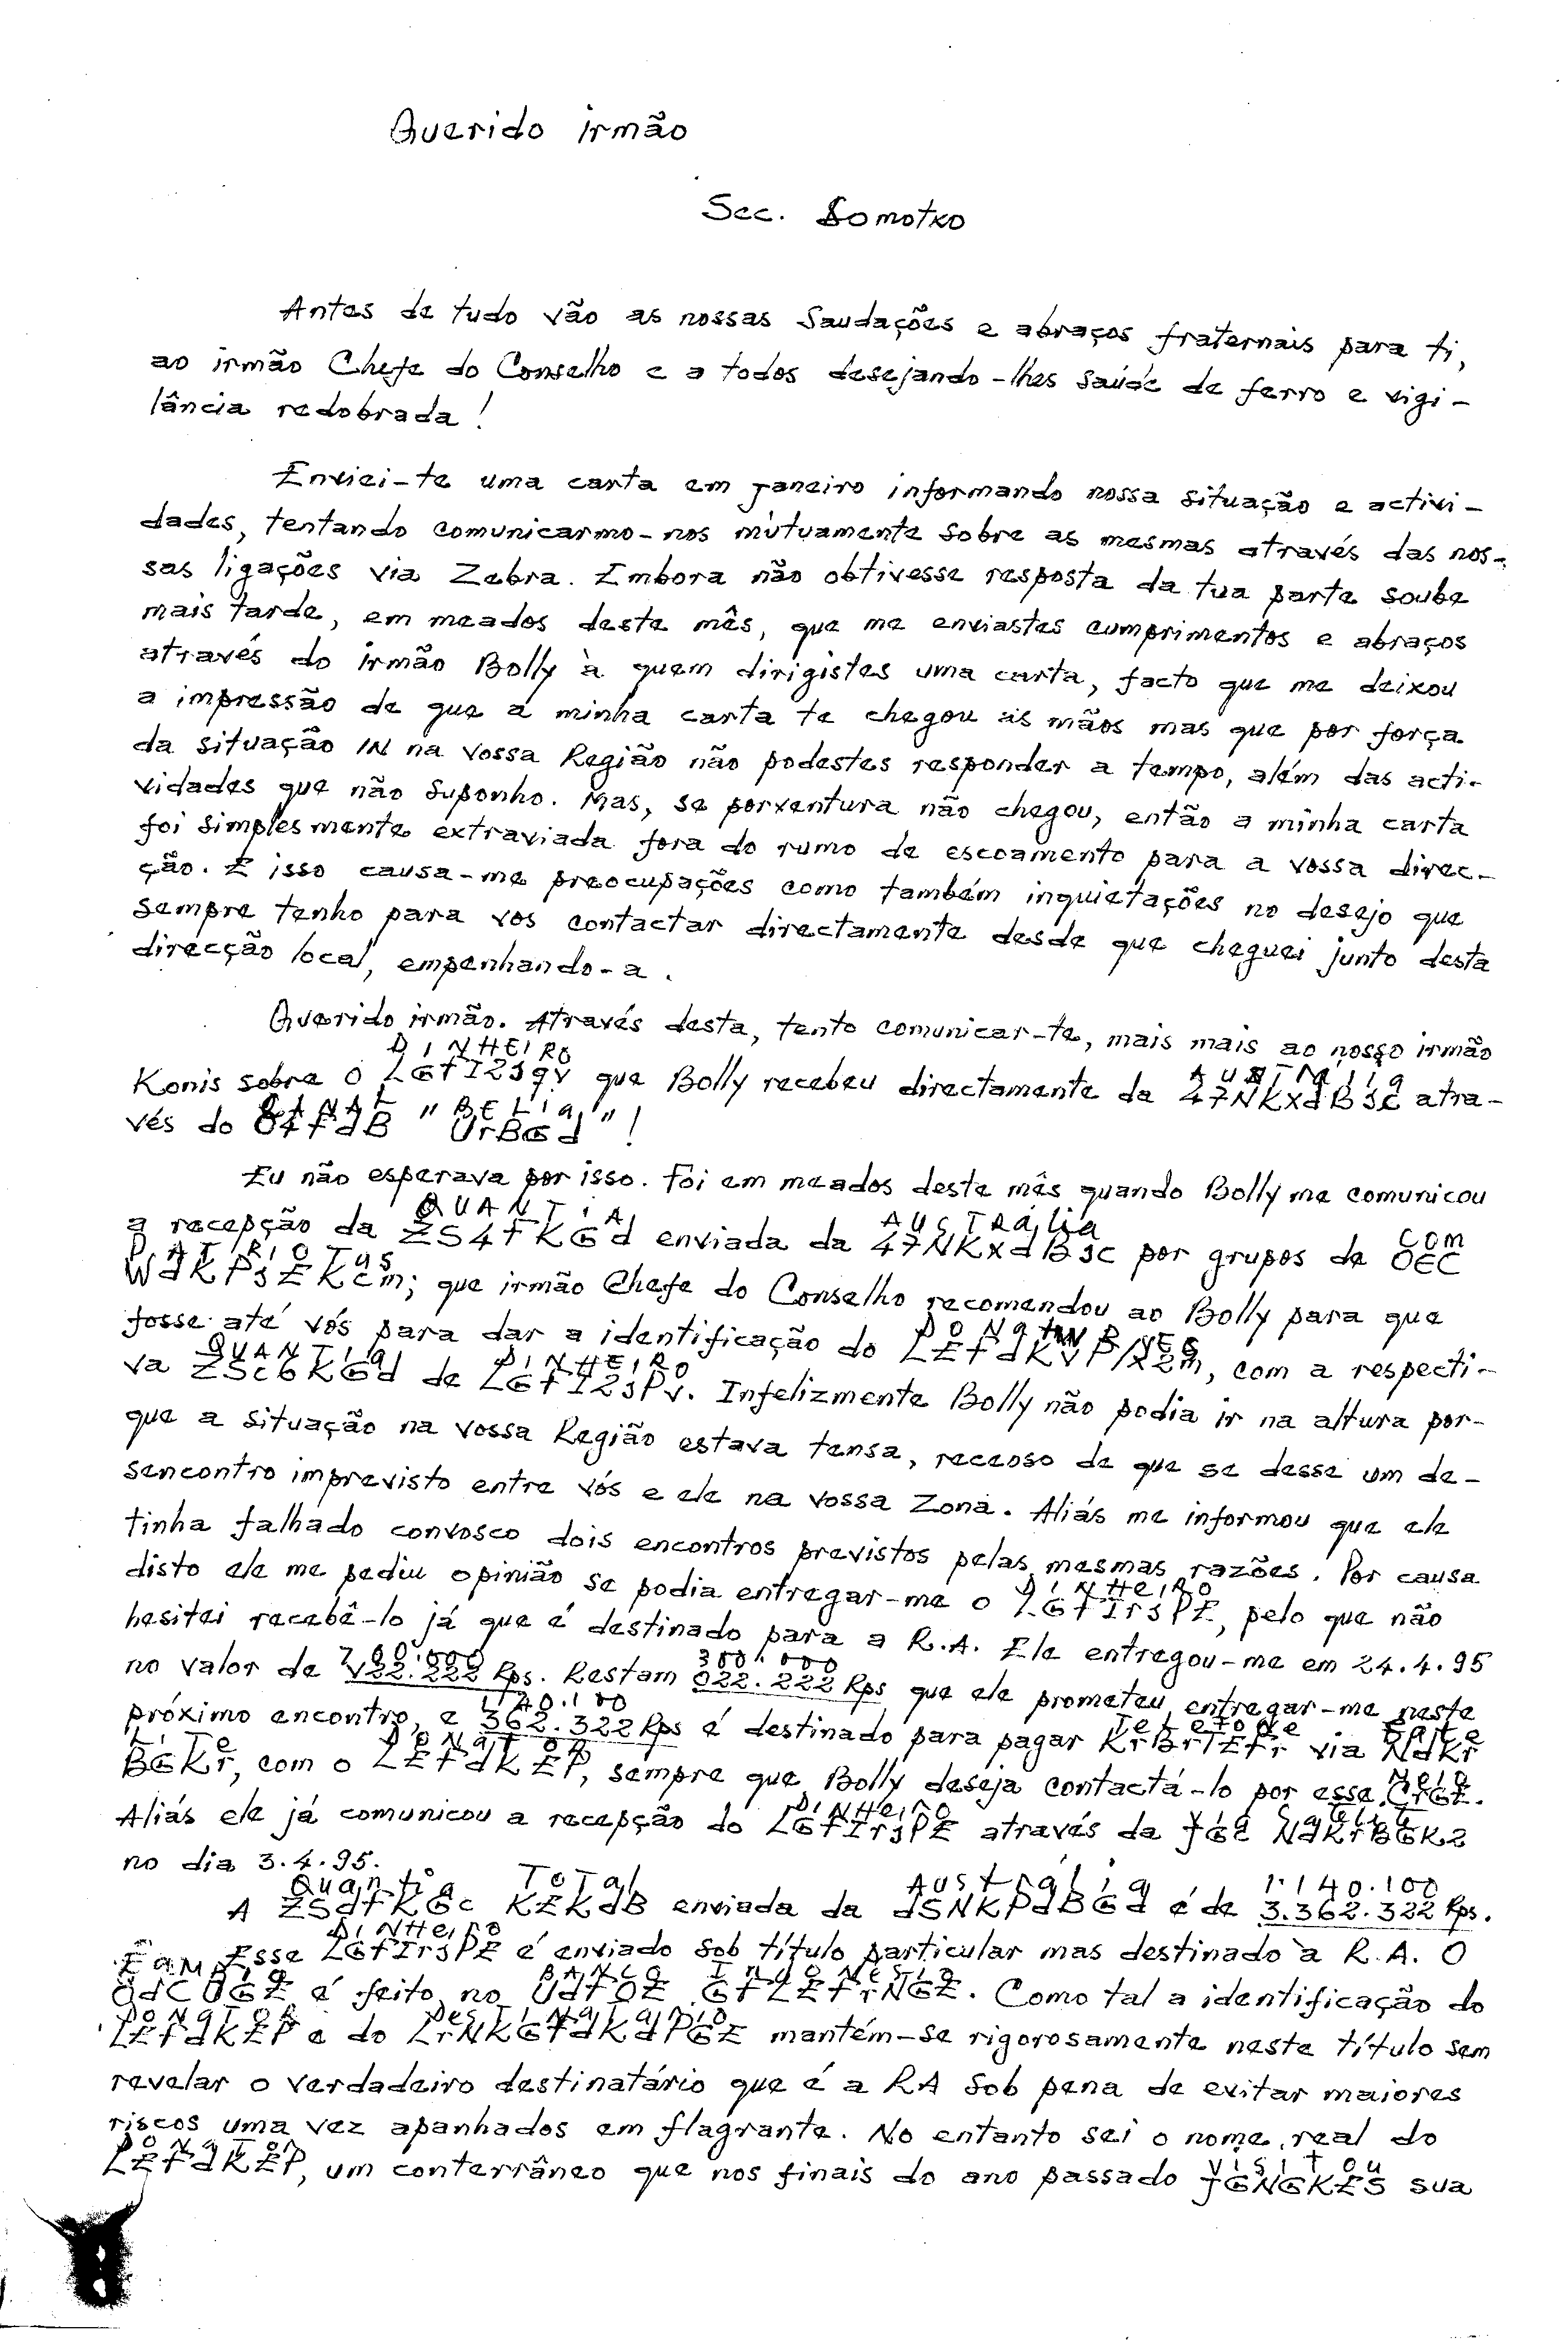 Querido irmão
Sec. Somotxo
Antes de tudo vão as nossas saudações e abraços fraternais para ti,
ao irmão Chefe do Conselho e a todos desejando-lhes saúde de ferro e vigi-
lância redobrada!
Enviei-te uma carta em janeiro informando nossa situação e activi-
dades, tentando comunicarmo-nos mùtuamente sobre as mesmas através das nos-
sas ligações via Zebra. Embora não obtivesse resposta da tua parte soube
mais tarde, em meados deste mês, que me enviastes cumprimentos e abraços
através do irmão Bolly à quem dirigistes uma carta, facto que me deixou
a impressão de que a minha carta te chegou às mãos mas que por força
da situação IN na vossa Região não podestes responder a tempo, além das acti-
vidades que não suponho. Mas, se porventura não chegou, então a minha carta
foi simplesmente extraviada fora do rumo de escoamento para a vossa direc-
ção. E isso causa-me preocupações como também inquietações no desejo que
sempre tenho para vos contactar directamente desde que cheguei junto desta
direcção local, empenhando-a.
Querido irmão. Através desta, tento comunicar-te, mais mais ao nosso irmão
DINHEIRO
Konis sobre o LGfI2sqv que Bolly recebeu directamente da 47NKxdBsc atra-
CANAL "BELIA"
vés do O4fdB "UrBGd"!
Eu não esperava por isso. Foi em meados deste mês quando Bolly me comunicou
QUANTIA AUSTRália COM
a recepção da ZS4fKGd enviada da 47NKxdBsc por grupos de OEC
PATRIOTAS
WdKPsEKcm; que irmão Chefe do Conselho recomendou ao Bolly para que
fosse até vós para dar a identificação do LEfdKvP/x2m, com a respecti-
QUANTIA DINHEIRO
va ZSc6KGd de LGfI2sPv. Infelizmente Bolly não podia ir na altura por-
que a situação na vossa Região estava tensa, receoso de que se desse um de-
sencontro imprevisto entre vós e ele na vossa Zona. Aliás me informou que ele
tinha falhado convosco dois encontros previstos pelas mesmas razões. Por causa
DINHeIRO
disto ele me pediu opinião se podia entregar-me o LGfIrsPE, pelo que não
hesitei recebê-lo já que é destinado para a R.A. Ele entregou-me em 24.4.95
700.000 300.000
no valor de V22.222 Rps. Restam 022.222 Rps que ele prometeu entregar-me neste
140.100
próximo encontro, e 362.322 Rps é destinado para pagar KrBrTEfr via NdKr
BGKr, com o LEfdKEP, sempre que Bolly deseja contactá-lo por esse CrGE.
DINHeIRO
Aliás ele já comunicou a recepção do LGfIrsPE através da JGc NdKrBGK2
no dia 3.4.95.
Quantia ToTal Australia 1.140.100
A ZSdfKGc KEKdB enviada da dSNKPdBGd é de 3.362.322 Rps.
DINHeIRO
Esse LGfIrsPE é enviado sob título particular mas destinado à R.A. O
BANCO INDONeSIO
QdCUGE é feito no UdfOE GfLEfrNGE. Como tal a identificação do
DONaTOR DesTINaTaRIO
LEfdKEP e do LrNKGfdKdPGE mantém-se rigorosamente neste título sem
revelar o verdadeiro destinatário que é a RA sob pena de evitar maiores
riscos uma vez apanhados em flagrante. No entanto sei o nome real do
DONaTOR VISITOU
LEfdKEP, um conterrâneo que nos finais do ano passado JGNGKES sua